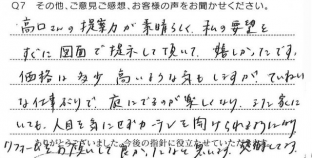 Q7 その他、ご意見ご感想、お客様の声をお聞かせください。
高口さんの提案力が素晴らしく、私の要望を
すぐに図面で提示して頂いて、嬉しかったです。
価格は多少高いような気もしますが、ていねい
な仕事ぶりで、庭にでるのが楽しくなり、家に
いても、人目を気にせずカーテンを開けられるようになり
ありがとうございました 今後の指針に役立たせていただ
リフォームをお願いして良かったなと思います。感謝してます。